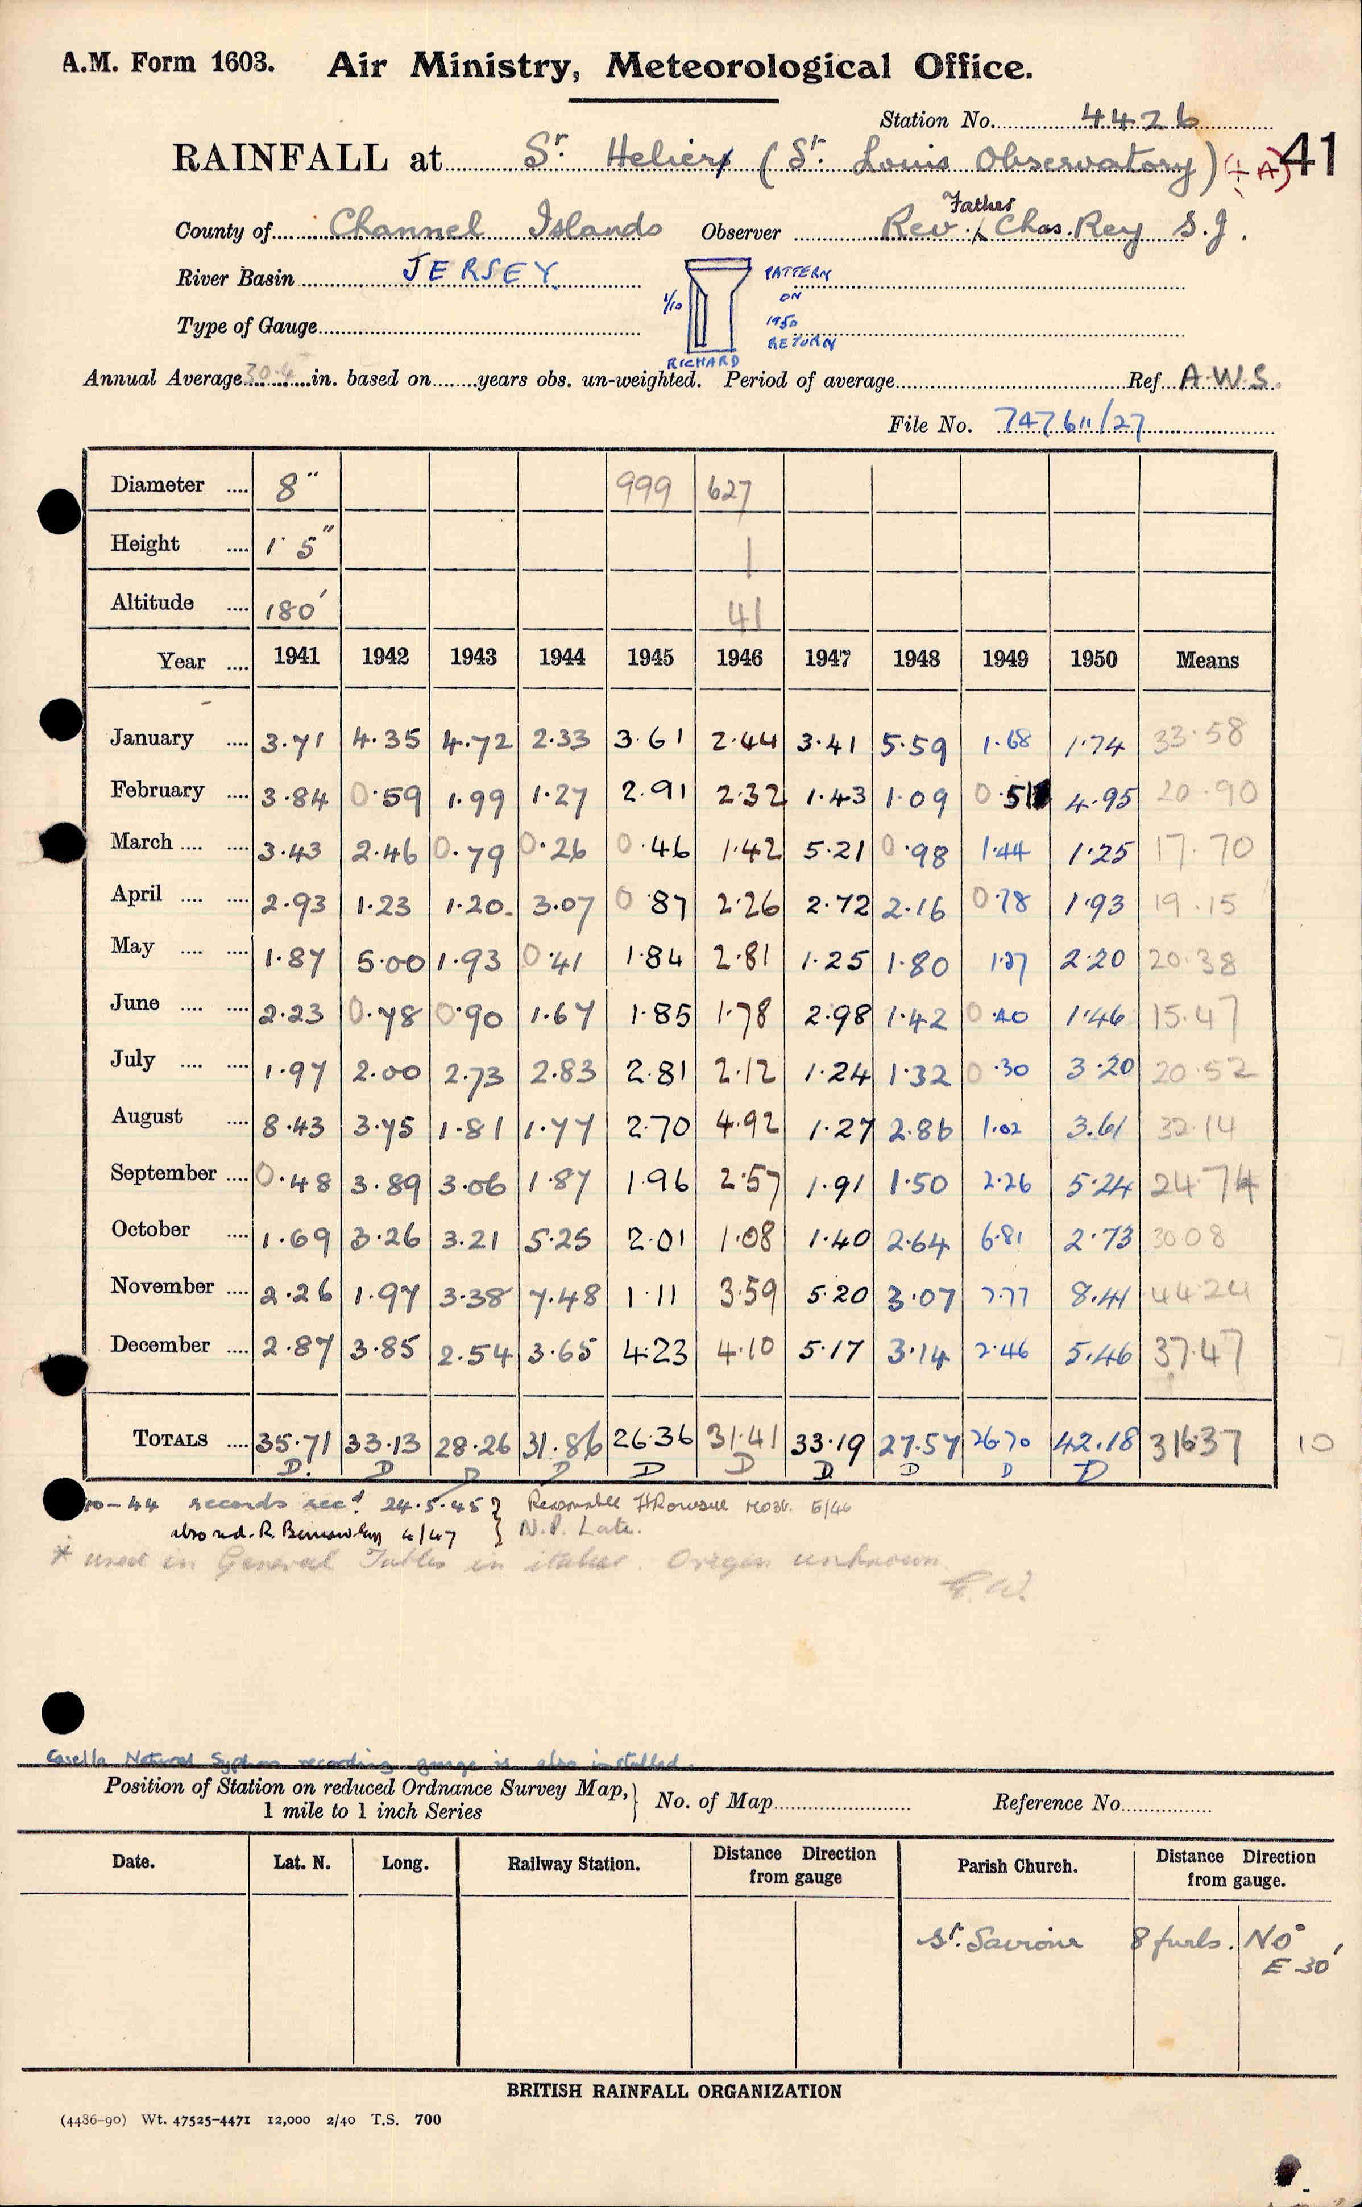 A.M. Form 1603. Air Ministry, Meteorological Office.
Station No. 4426
RAINFALL at St. Helier (St. Louis Observatory) (+A) 41
County of Channel Islands Observer Rev. Father Chas. Rey S.J.
River Basin JERSEY
1/10 PATTERN ON 1950 RETURN
Type of Gauge
RICHARD
Annual Average 30.4 in. based on years obs. un-weighted. Period of average Ref A.W.S.
File No. 747611/27
Diameter .... 8" 999 627
Height .... 1' 5" 1
Altitude .... 180' 41
Year .... 1941 1942 1943 1944 1945 1946 1947 1948 1949 1950 Means
January .... 3.71 4.35 4.72 2.33 3.61 2.44 3.41 5.59 1.68 1.74 33.58
February .... 3.84 0.59 1.99 1.27 2.91 2.32 1.43 1.09 0.51 4.95 20.90
March .... .... 3.43 2.46 0.79 0.26 0.46 1.42 5.21 0.98 1.44 1.25 17.70
April .... .... 2.93 1.23 1.20 3.07 0.87 2.26 2.72 2.16 0.78 1.93 19.15
May .... .... 1.87 5.00 1.93 0.41 1.84 2.81 1.25 1.80 1.27 2.20 20.38
June .... .... 2.23 0.78 0.90 1.67 1.85 1.78 2.98 1.42 0.40 1.46 15.47
July .... .... 1.97 2.00 2.73 2.83 2.81 2.12 1.24 1.32 0.30 3.20 20.52
August .... 8.43 3.75 1.81 1.77 2.70 4.92 1.27 2.86 1.02 3.61 32.14
September .... 0.48 3.89 3.06 1.87 1.96 2.57 1.91 1.50 2.26 5.24 24.74
October .... 1.69 3.26 3.21 5.25 2.01 1.08 1.40 2.64 6.81 2.73 30.08
November .... 2.26 1.97 3.38 7.48 1.11 3.59 5.20 3.07 7.77 8.41 44.24
December .... 2.87 3.85 2.54 3.65 4.23 4.10 5.17 3.14 2.46 5.46 37.47
TOTALS .... 35.71 33.13 28.26 31.86 26.36 31.41 33.19 27.57 26.70 42.18 316.37 10
D. D D D D D D D D D
40-44 records recd 24.5.45 } Reasonable
4/47 } N.P. Late.
* used in General Tables in italics. Origin unknown
E.W.
Casella Natural Syphon recording gauge is also installed.
Position of Station on reduced Ordnance Survey Map, } No. of Map Reference No.
1 mile to 1 inch Series
Date. Lat. N. Long. Railway Station. Distance from gauge Direction Parish Church. Distance Direction from gauge.
St. Saviour 8 furls. N 0°
E 30'
BRITISH RAINFALL ORGANIZATION
(4486-90) Wt. 47525-4471 12,000 2/40 T.S. 700